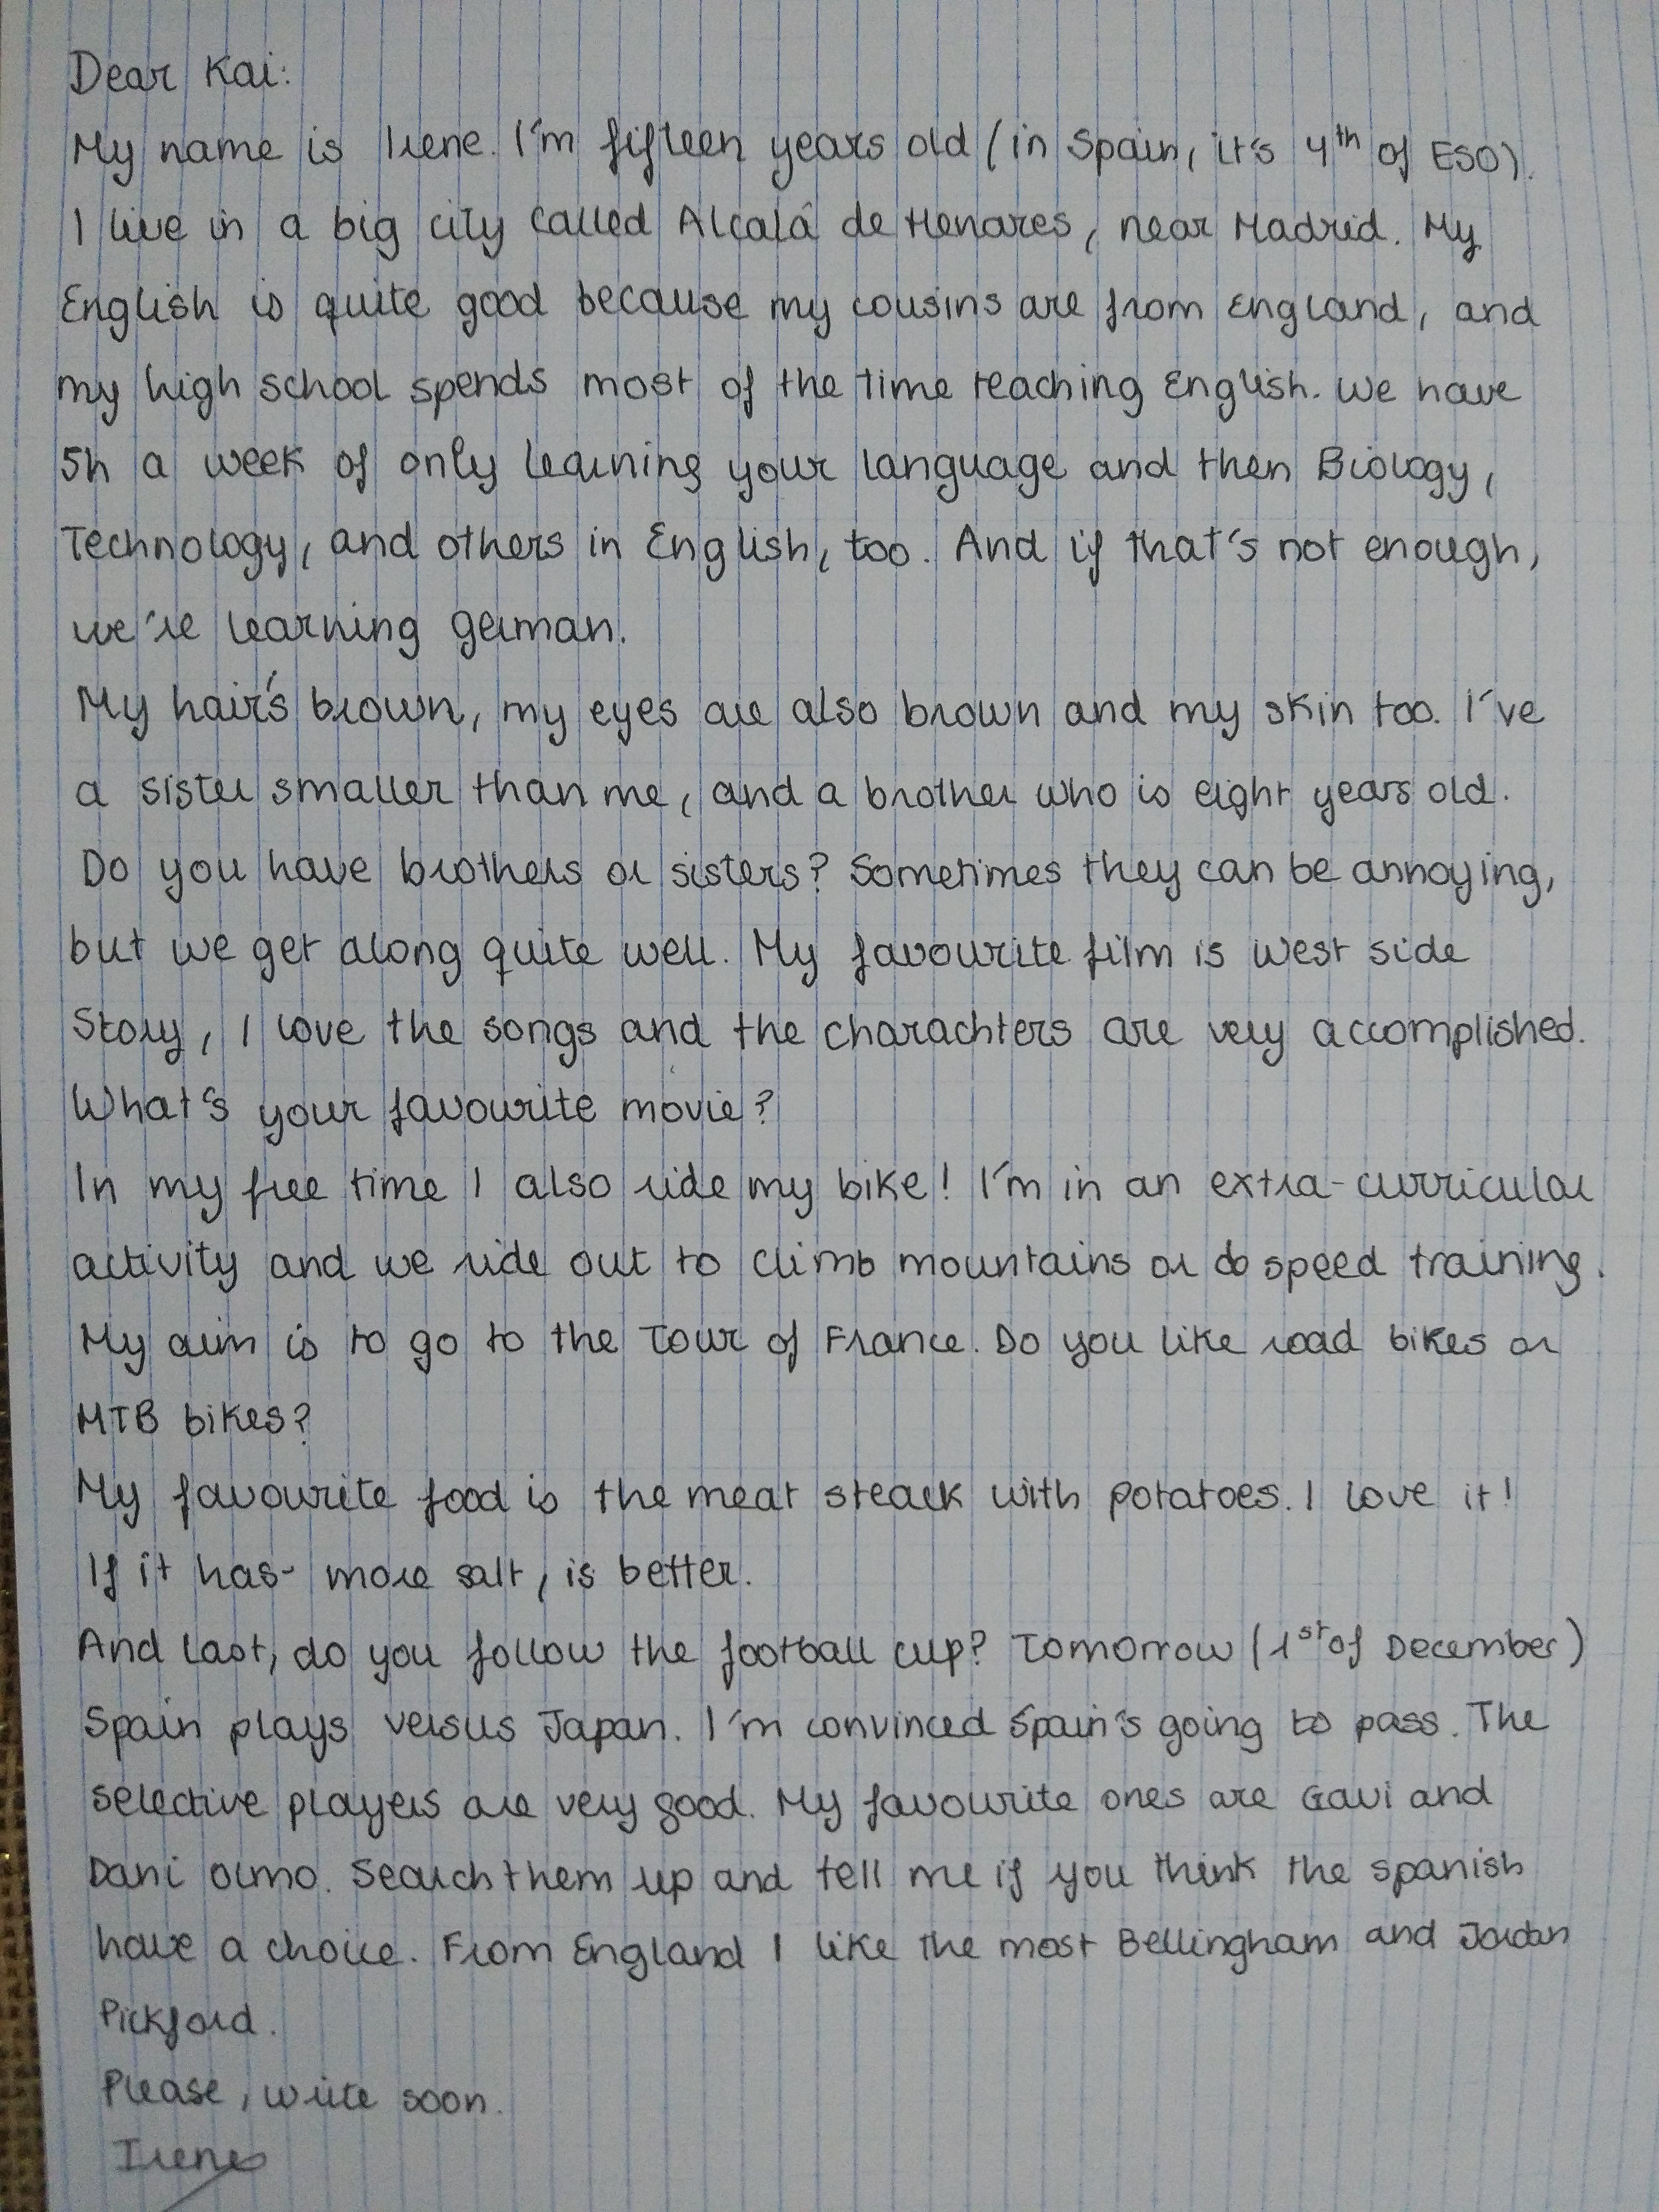 Dear Kai:
My name is Irene. I'm fifteen years old (in Spain, it's 4th of ESO).
I live in a big city called Alcalá de Henares, near Madrid. My
English is quite good because my cousins are from England, and
my high school spends most of the time teaching English. We have
5h a week of only learning your language and then Biology,
Technology, and others in English, too. And if that's not enough,
we're learning german.
My hair's brown, my eyes are also brown and my skin too. I've
a sister smaller than me, and a brother who is eight years old.
Do you have brothers or sisters? Sometimes they can be annoying,
but we get along quite well. My favourite film is West side
Story, I love the songs and the charachters are very accomplished.
What's your favourite movie?
In my free time I also ride my bike! I'm in an extra-curricular
activity and we ride out to climb mountains or do speed training.
My aim is to go to the Tour of France. Do you like road bikes or
MTB bikes?
My favourite food is the meat steack with potatoes. I love it!
If it has more salt, is better.
And last, do you follow the football cup? Tomorrow (1st of December)
Spain plays versus Japan. I'm convinced Spain's going to pass. The
selective players are very good. My favourite ones are Gavi and
Dani Olmo. Search them up and tell me if you think the spanish
have a choice. From England I like the most Bellingham and Jordan
Pickford.
Please, write soon.
Irene